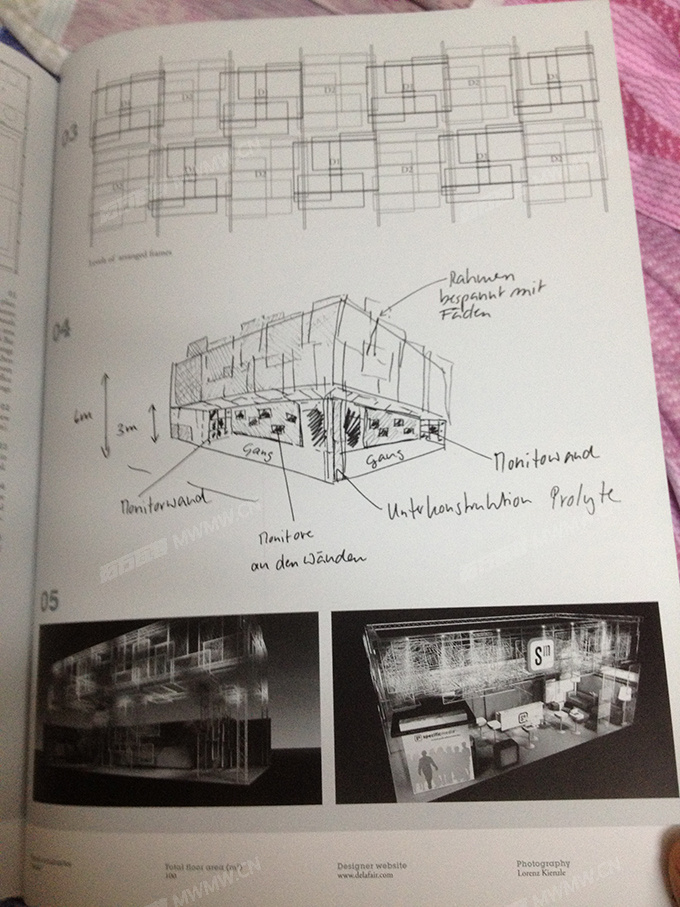 03
D1 D2 D1 D2 D1 D2 D1
D2 D1 D2 D1 D2 D1 D2
Levels of arranged frames
04
Rahmen
bespannt mit
Fäden
6m
3m
Gang
Gang
Monitorwand
Monitorwand
Unterkonstruktion Prolyte
Monitore
an den Wänden
05
S m
specificmedia
Total floor area (m²)
100
Designer website
www.defafair.com
Photography
Lorenz Kienzle
MWMW.CN
MWMW.CN
MWMW.CN
MWMW.CN
MWMW.CN